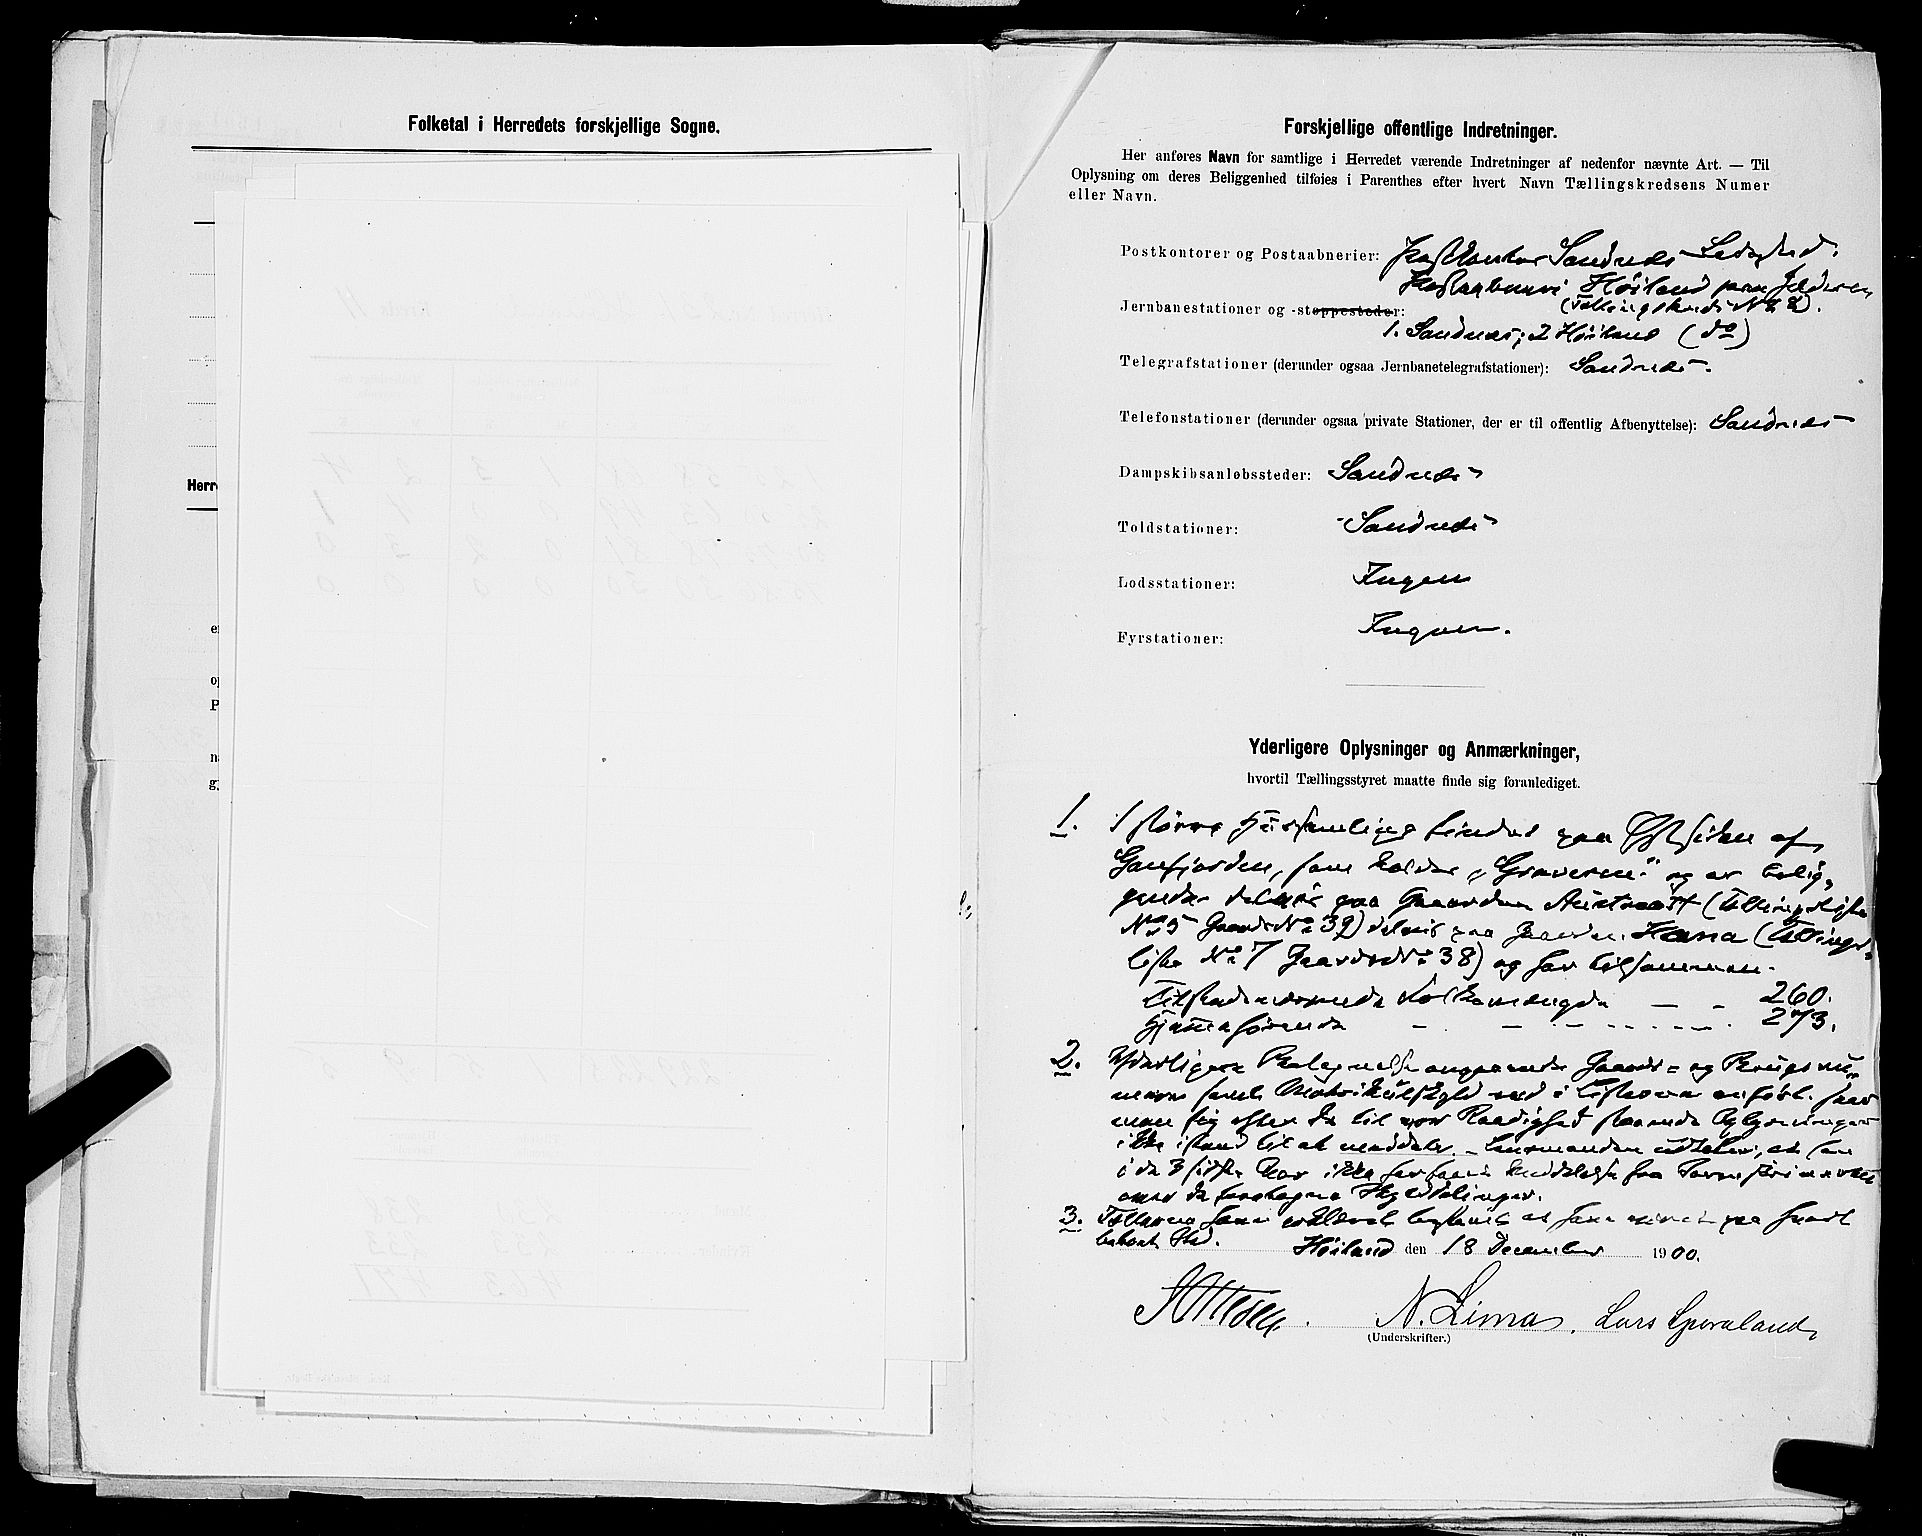 Folketal i Herredets forskjellige Sogne.
Herre
er
op
P
na
gj
Forskjellige offentlige Indretninger.
Her anføres Navn for samtlige i Herredet værende Indretninger af nedenfor nævnte Art. — Til
Oplysning om deres Beliggenhed tilføies i Parenthes efter hvert Navn Tællingskredsens Numer
eller Navn.
Postkontorer og Postaabnerier: Postkontor Sandnes Ladested.
Postaabneri Høiland paa Jæderen
(Tællingskreds No 2).
Jernbanestationer og -stoppesteder:
1. Sandnes; 2 Høiland (do)
Telegrafstationer (derunder ogsaa Jernbanetelegrafstationer): Sandnes.
Telefonstationer (derunder ogsaa private Stationer, der er til offentlig Afbenyttelse): Sandnes
Dampskibsanløbssteder: Sandnes
Toldstationer: Sandnes
Lodsstationer: Ingen
Fyrstationer: Ingen.
Yderligere Oplysninger og Anmærkninger,
hvortil Tællingsstyret maatte finde sig foranlediget.
1. 1 større Hussamling findes paa Østsiden af
Ganfjorden, som kaldes „Graverne" og er belig„
gende delvis paa Gaarden Austraatt (Tællingsliste
No 5 Gaards No 39) delvis paa Gaarden Hana (Tællings„
liste No 7 Gaards No 38) og har tilsammen.
Tilstedeværende Folkemængde — - 260.
Hjemmehørende - - - - - 273.
2. Yderligere Betegnelse angaaende Gaards- og Brugsnu„
mere samt Matrikulskyld end i Listerne anført. seer
man sig efter de til vor Raadighed staaende Oplysninger
ikke istand til at meddele. Lensmanden udtaler, at han
i de 3 sidste Aar ikke har faaet Meddelelse fra Sorenskriveren
over de foretagne Skylddelinger.
3. Tællerne have erklæret at have været paa hvert
beboet Sted.
Høiland den 18 December 1900.
N. Lima. Lars
(Underskrifter.)